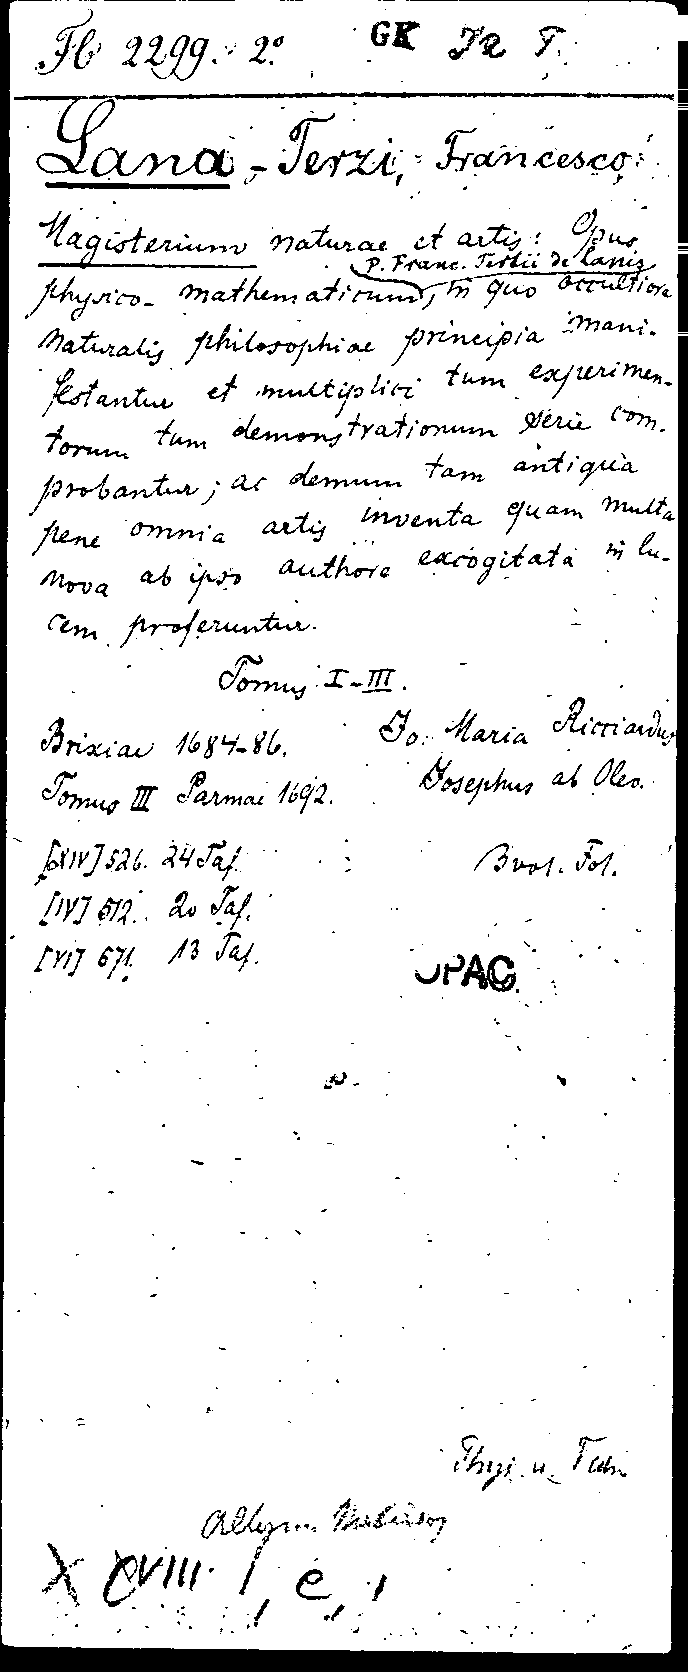 Fb 2299. 2° GK
Lana-Terzi, Francesco:
Magisterium naturae et artis: Opus
P. Franc. Tertii de Lanis
physico-mathematicum, in quo occultiora
naturalis philosophiae principia mani-
festantur et multiplici tum experimen-
torum tum demonstrationum serie com-
probantur; ac demum tam antiqua
pene omnia artis inventa quam multa
nova ab ipso authore excogitata in lu-
cem proferuntur.
Tomus I-III.
Brixiae 1684-86. Jo. Maria Ricciardus
Tomus III Parmae 1692. Josephus ab Oleo.
[XIV] 526. 24 Taf. 3 vol. Fol.
[IV] 512. 20 Taf.
[VI] 571. 13 Taf.
OPAC
Phys. u.
XXVIII. 1, e, 1